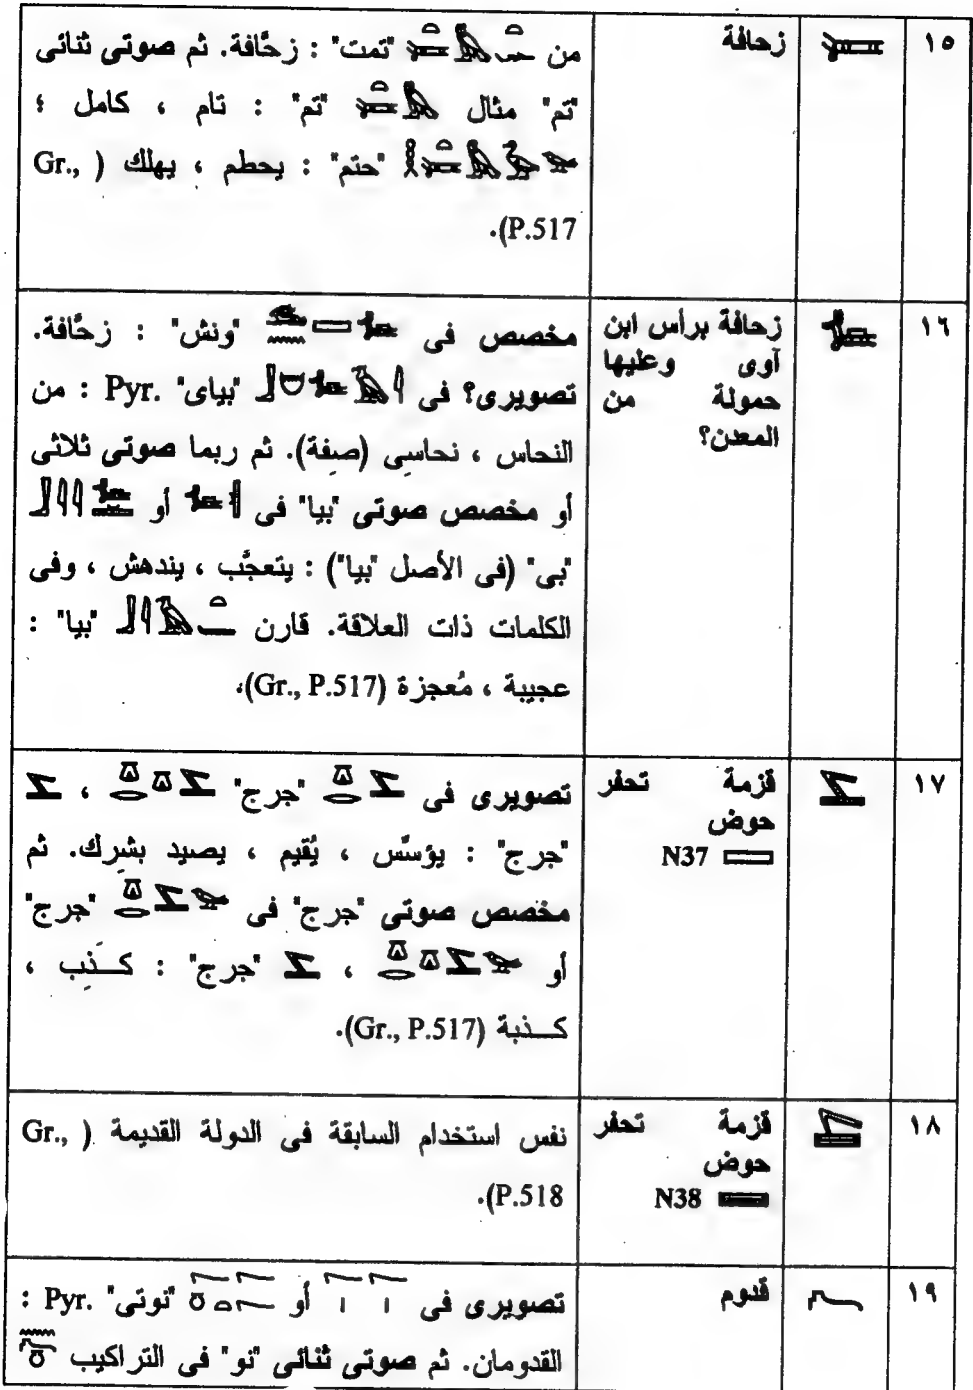 ١٥ زحافة من "تمت" : زحَّافة. ثم صوتى ثنائى
"تم" مثال "تم" : تام ، كامل ؛
"حتم" : يحطم ، يهلك (Gr.,
P.517).
١٦ زحافة برأس ابن مخصص فى "ونش" : زحَّافة.
آوى وعليها تصويرى؟ فى "بياى" Pyr. : من
حمولة من
المعدن؟ النحاس ، نحاسِى (صفة). ثم ربما صوتى ثلاثى
أو مخصص صوتى "بيا" فى أو
"بى" (فى الأصل "بيا") : يتعجَّب ، يندهش ، وفى
الكلمات ذات العلاقة. قارن "بيا" :
عجيبة ، مُعجزة (Gr., P.517).
١٧ قزمة تحفر تصويرى فى "جرج" ،
حوض "جرج" : يؤسَّس ، يُقيم ، يصيد بشرِك. ثم
N37 مخصص صوتى "جرج" فى "جرج"
أو ، "جرج" : كـــذِب ،
كـــذبة (Gr., P.517).
١٨ قزمة تحفر نفس استخدام السابقة فى الدولة القديمة (Gr.,
حوض
N38 P.518).
١٩ قدوم تصويرى فى أو "نوتى" Pyr. :
القدومان. ثم صوتى ثنائى "نو" فى التراكيب